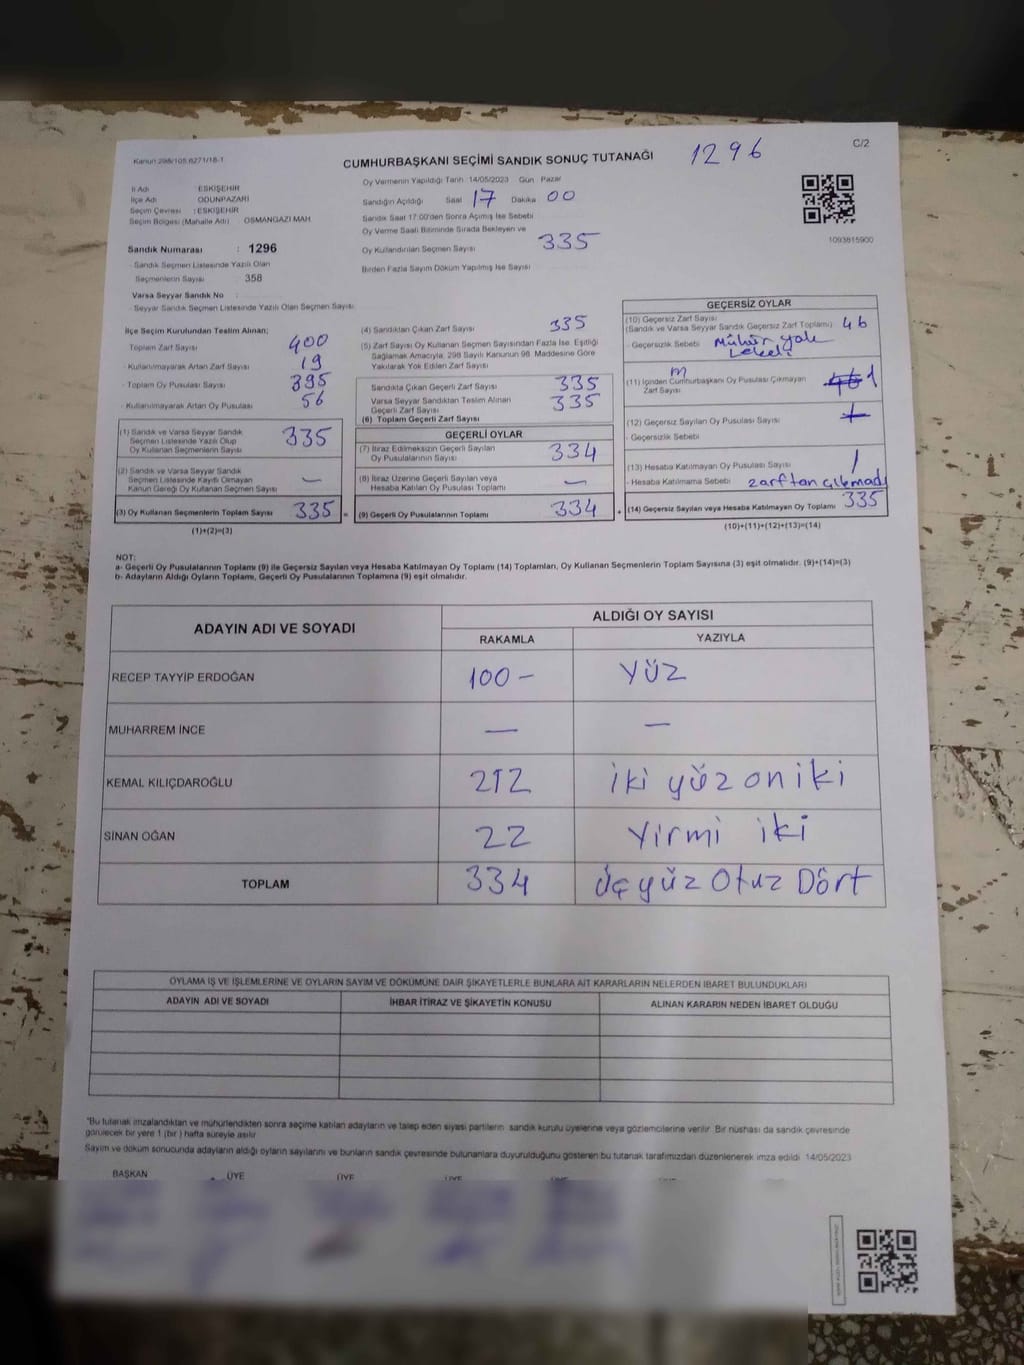 Kanun 298/105 6271/18-1
CUMHURBAŞKANI SEÇİMİ SANDIK SONUÇ TUTANAĞI
1296
C/2
İl Adı ESKİŞEHİR
İlçe Adı ODUNPAZARI
Seçim Çevresi : ESKİŞEHİR
Seçim Bölgesi (Mahalle Adı) OSMANGAZI MAH.
Sandık Numarası : 1296
- Sandık Seçmen Listesinde Yazılı Olan
Seçmenlerin Sayısı 358
Varsa Seyyar Sandık No
- Seyyar Sandık Seçmen Listesinde Yazılı Olan Seçmen Sayısı
Oy Vermenin Yapıldığı Tarih 14/05/2023 Gün Pazar
Sandığın Açıldığı Saat 17 Dakika 00
Sandık Saat 17:00'den Sonra Açılmış İse Sebebi
Oy Verme Saati Bitiminde Sırada Bekleyen ve
Oy Kullandırılan Seçmen Sayısı 335
Birden Fazla Sayım Döküm Yapılmış İse Sayısı
1093815900
İlçe Seçim Kurulundan Teslim Alınan;
Toplam Zarf Sayısı 400
- Kullanılmayarak Artan Zarf Sayısı 19
- Toplam Oy Pusulası Sayısı 395
- Kullanılmayarak Artan Oy Pusulası 56
(1) Sandık ve Varsa Seyyar Sandık
Seçmen Listesinde Yazılı Olup
Oy Kullanan Seçmenlerin Sayısı 335
(2) Sandık ve Varsa Seyyar Sandık
Seçmen Listesinde Kayıtlı Olmayan
Kanun Gereği Oy Kullanan Seçmen Sayısı —
(3) Oy Kullanan Seçmenlerin Toplam Sayısı 335 =
(1)+(2)=(3)
(4) Sandıktan Çıkan Zarf Sayısı 335
(5) Zarf Sayısı Oy Kullanan Seçmen Sayısından Fazla İse, Eşitliği
Sağlamak Amacıyla, 298 Sayılı Kanunun 98. Maddesine Göre
Yakılarak Yok Edilen Zarf Sayısı
Sandıkta Çıkan Geçerli Zarf Sayısı 335
Varsa Seyyar Sandıktan Teslim Alınan
Geçerli Zarf Sayısı 335
(6) Toplam Geçerli Zarf Sayısı
GEÇERLİ OYLAR
(7) İtiraz Edilmeksizin Geçerli Sayılan
Oy Pusulalarının Sayısı 334
(8) İtiraz Üzerine Geçerli Sayılan veya
Hesaba Katılan Oy Pusulası Toplamı —
(9) Geçerli Oy Pusulalarının Toplamı 334 +
GEÇERSİZ OYLAR
(10) Geçersiz Zarf Sayısı
(Sandık ve Varsa Seyyar Sandık Geçersiz Zarf Toplamı)
- Geçersizlik Sebebi Mühür yok
Lekeli
(11) İçinden Cumhurbaşkanı Oy Pusulası Çıkmayan
Zarf Sayısı 1
(12) Geçersiz Sayılan Oy Pusulası Sayısı
- Geçersizlik Sebebi
(13) Hesaba Katılmayan Oy Pusulası Sayısı 1
- Hesaba Katılmama Sebebi zarftan çıkmadı
(14) Geçersiz Sayılan veya Hesaba Katılmayan Oy Toplamı 335
(10)+(11)+(12)+(13)=(14)
NOT:
a- Geçerli Oy Pusulalarının Toplamı (9) ile Geçersiz Sayılan veya Hesaba Katılmayan Oy Toplamı (14) Toplamları, Oy Kullanan Seçmenlerin Toplam Sayısına (3) eşit olmalıdır. (9)+(14)=(3)
b- Adayların Aldığı Oyların Toplamı, Geçerli Oy Pusulalarının Toplamına (9) eşit olmalıdır.
ADAYIN ADI VE SOYADI
ALDIĞI OY SAYISI
RAKAMLA YAZIYLA
RECEP TAYYİP ERDOĞAN 100 — yüz
MUHARREM İNCE — —
KEMAL KILIÇDAROĞLU 212 iki yüz on iki
SİNAN OĞAN 22 Yirmi iki
TOPLAM 334 Üçyüz Otuz Dört
OYLAMA İŞ VE İŞLEMLERİNE VE OYLARIN SAYIM VE DÖKÜMÜNE DAİR ŞİKAYETLERLE BUNLARA AİT KARARLARIN NELERDEN İBARET BULUNDUKLARI
ADAYIN ADI VE SOYADI İHBAR İTİRAZ VE ŞİKAYETİN KONUSU ALINAN KARARIN NEDEN İBARET OLDUĞU
"Bu tutanak imzalandıktan ve mühürlendikten sonra seçime katılan adayların ve talep eden siyasi partilerin sandık kurulu üyelerine veya gözlemcilerine verilir. Bir nüshası da sandık çevresinde
görülecek bir yere 1 (bir) hafta süreyle asılır.
Sayım ve döküm sonucunda adayların aldığı oyların sayılarını ve bunların sandık çevresinde bulunanlara duyurulduğunu gösteren bu tutanak tarafımızdan düzenlenerek imza edildi. 14/05/2023
BAŞKAN ÜYE ÜYE ÜYE